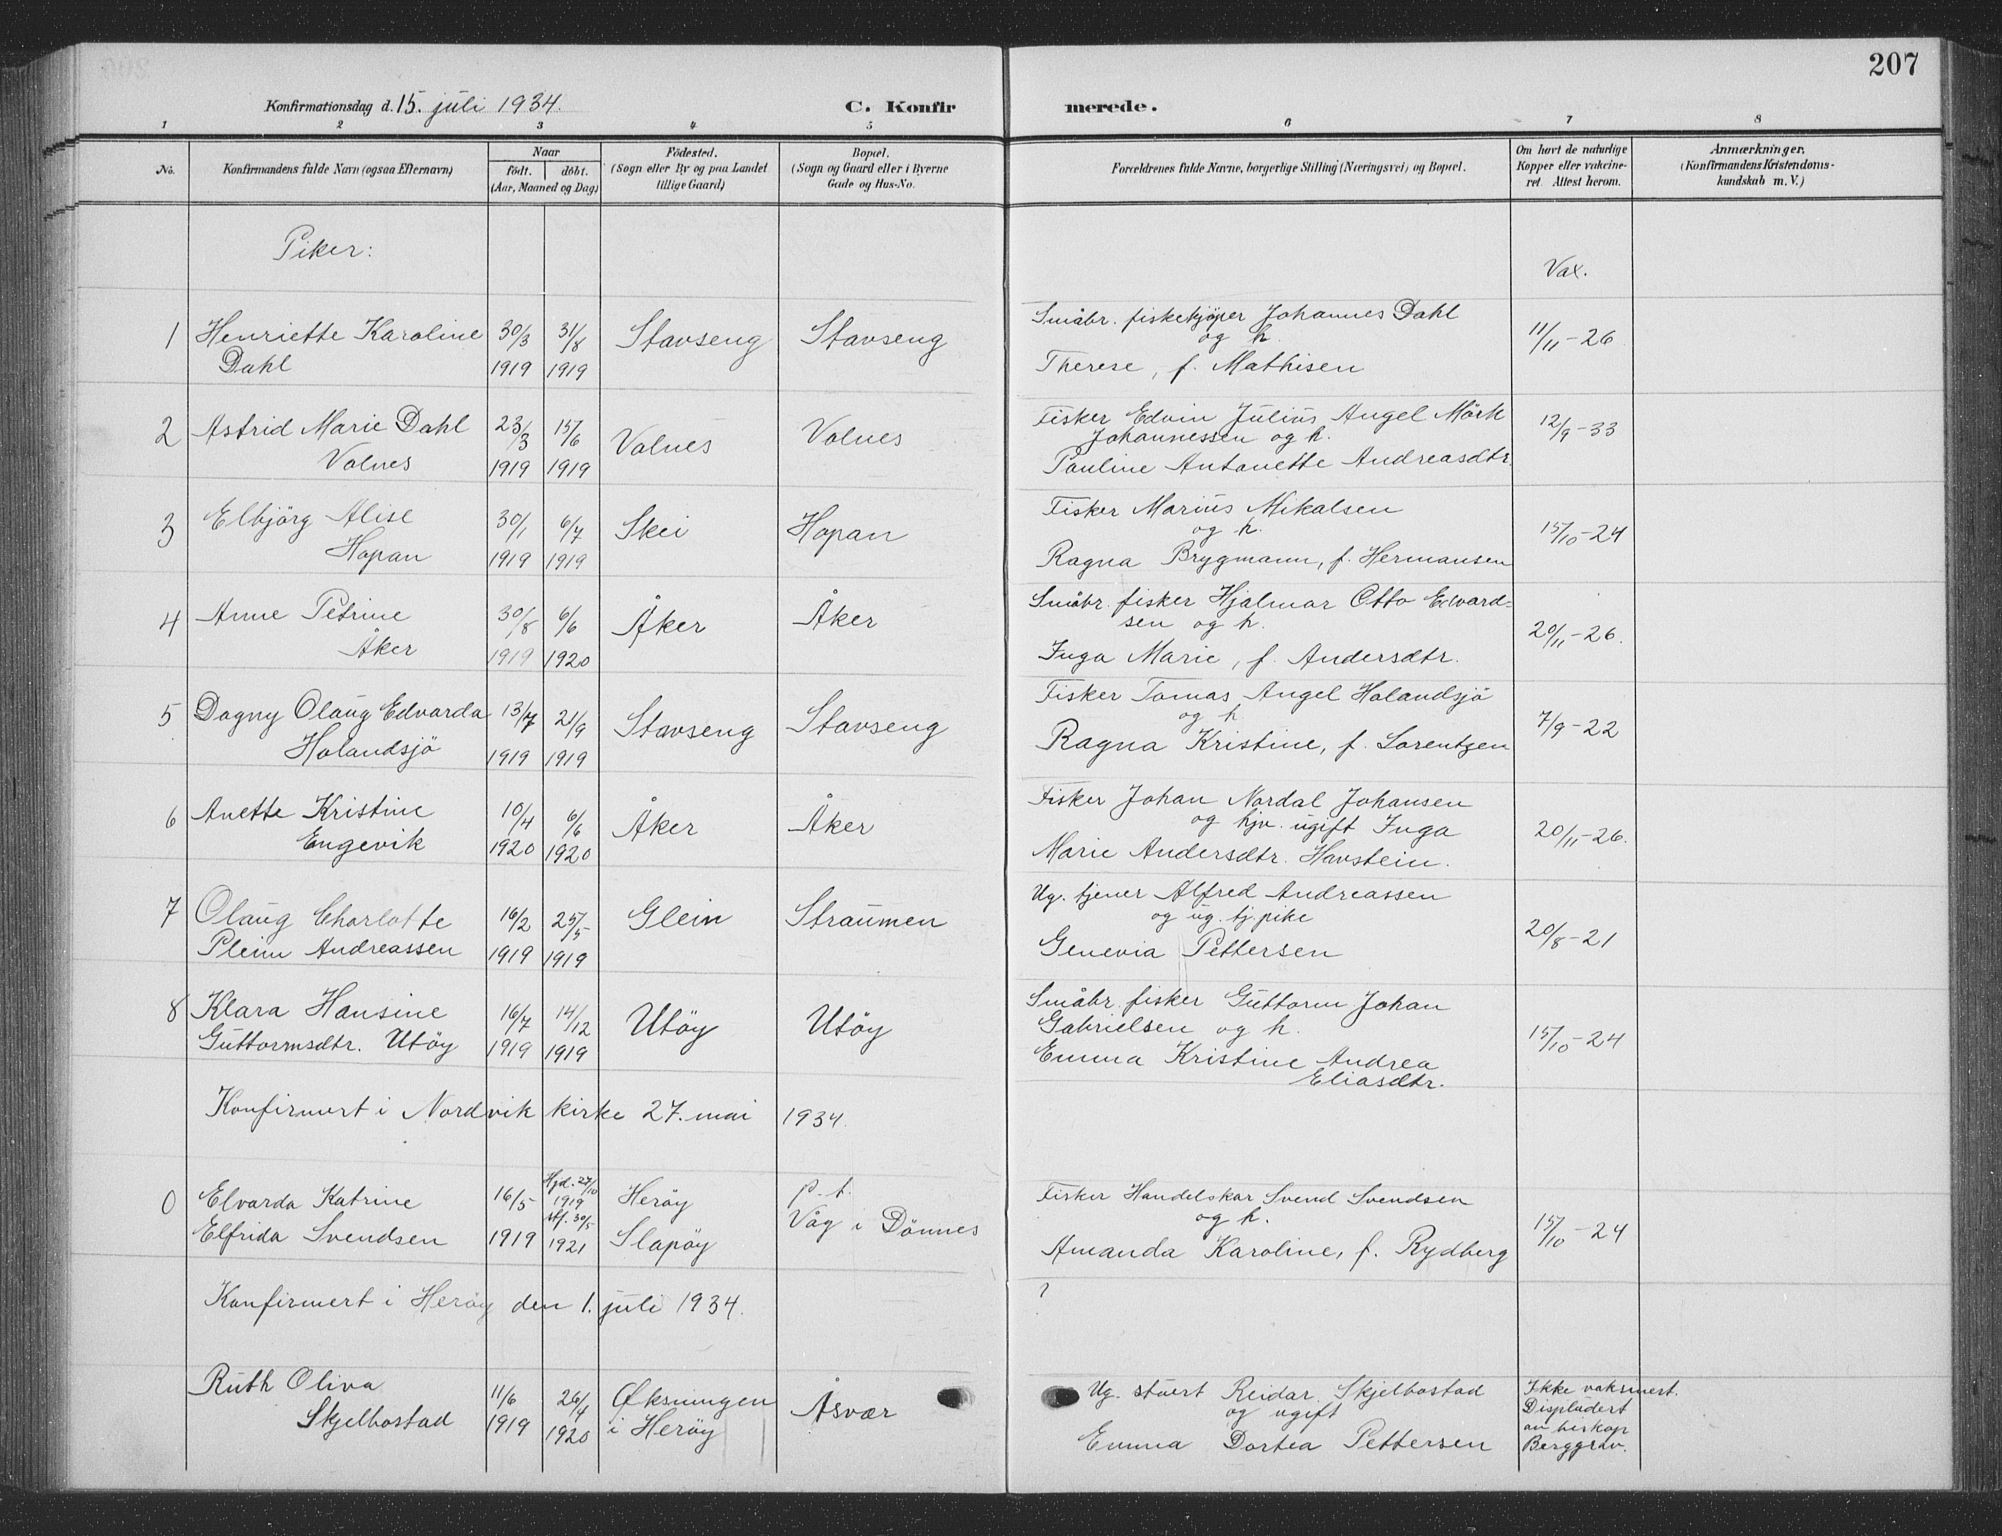 207
Konfirmationsdag d. 15. juli 1934. C. Konfirmerede.
1 2 3 4 5 6 7 8
No. Konfirmandens fulde Navn (ogsaa Efternavn) Naar født. døbt. (Aar, Maaned og Dag) Fødested. (Sogn eller By og paa Landet tillige Gaard) Bopæl. (Sogn og Gaard eller i Byerne Gade og Hus-No. Forældrenes fulde Navne, borgerlige Stilling (Næringsvei) og Bopæl. Om havt de naturlige Kopper eller vakcineret. Attest herom. Anmærkninger. (Konfirmandens Kristendomskundskab m. V.)
Piker:
Vax.
1 Henriette Karoline 30/3 31/8 Stavseng Stavseng Småbr. fiskekjøper Johannes Dahl 11/11-26
og h.
Dahl 1919 1919 Therese, f. Mathisen
2 Astrid Marie Dahl 23/3 15/6 Valnes Valnes Fisker Edvin Julius Angel Mörk 12/9-33
Johannessen og h.
Valnes 1919 1919 Pauline Antonette Andreasdtr.
3 Elbjörg Alise 30/1 6/7 Skei Hopan Fisker Marius Mikalsen 15/10-24
og h.
Hopan 1919 1919 Ragna Brygmann, f. Hermansen
4 Anne Petrine 30/8 6/6 Åker Åker Småbr. fisker Hjalmar Otto Edvard=
sen og h. 20/11-26.
Åker 1919 1920 Inga Marie, f. Andersdtr.
5 Dagny Olaug Edvarda 13/7 21/9 Stavseng Stavseng Fisker Tomas Angel Holandsjö 7/9-22
og h
Holandsjö 1919 1919 Ragna Kristine, f. Lorentzen
6 Anette Kristine 10/4 6/6 Åker Åker Fisker Johan Nordal Johansen
og hjv. ugift Inga 20/11-26.
Engevik 1920 1920 Marie Andersdtr. Havstein.
7 Olaug Charlotte 16/2 25/5 Glein Straumen Ug. tjener Alfred Andreassen
og ug. tj.pike 20/8-21
Pleim Andreassen 1919 1919 Genevia Pettersen
8 Klara Hansine 16/7 14/12 Utöy Utöy Småbr. fisker Guttorm Johan
Gabrielsen og h. 15/10-24
Guttormsdtr. Utöy 1919 1919 Emma Kristine Andrea
Eliasdtr.
Konfirmert i Nordvik kirke 27. mai 1934.
0 Elvarda Katrine 16/5 Hjd. 27/10 1919 Heröy p.t. Fisker Handelskar Svend Svendsen
og h. 15/10-24
Elfrida Svendsen 1919 stf. 30/5 1921 Slapöy Våg i Dönnes Amanda Karoline, f. Rydberg
Konfirmert i Heröy den 1. juli 1934. ?
Ruth Oliva 11/6 26/4 Øksningen Åsvær Ug. stuert Reidar Skjelbostad Ikke vaksinert.
og ugift Displidert
Skjelbostad 1919 1920 i Heröy Emma Dortea Pettersen av biskop
Berggrav.